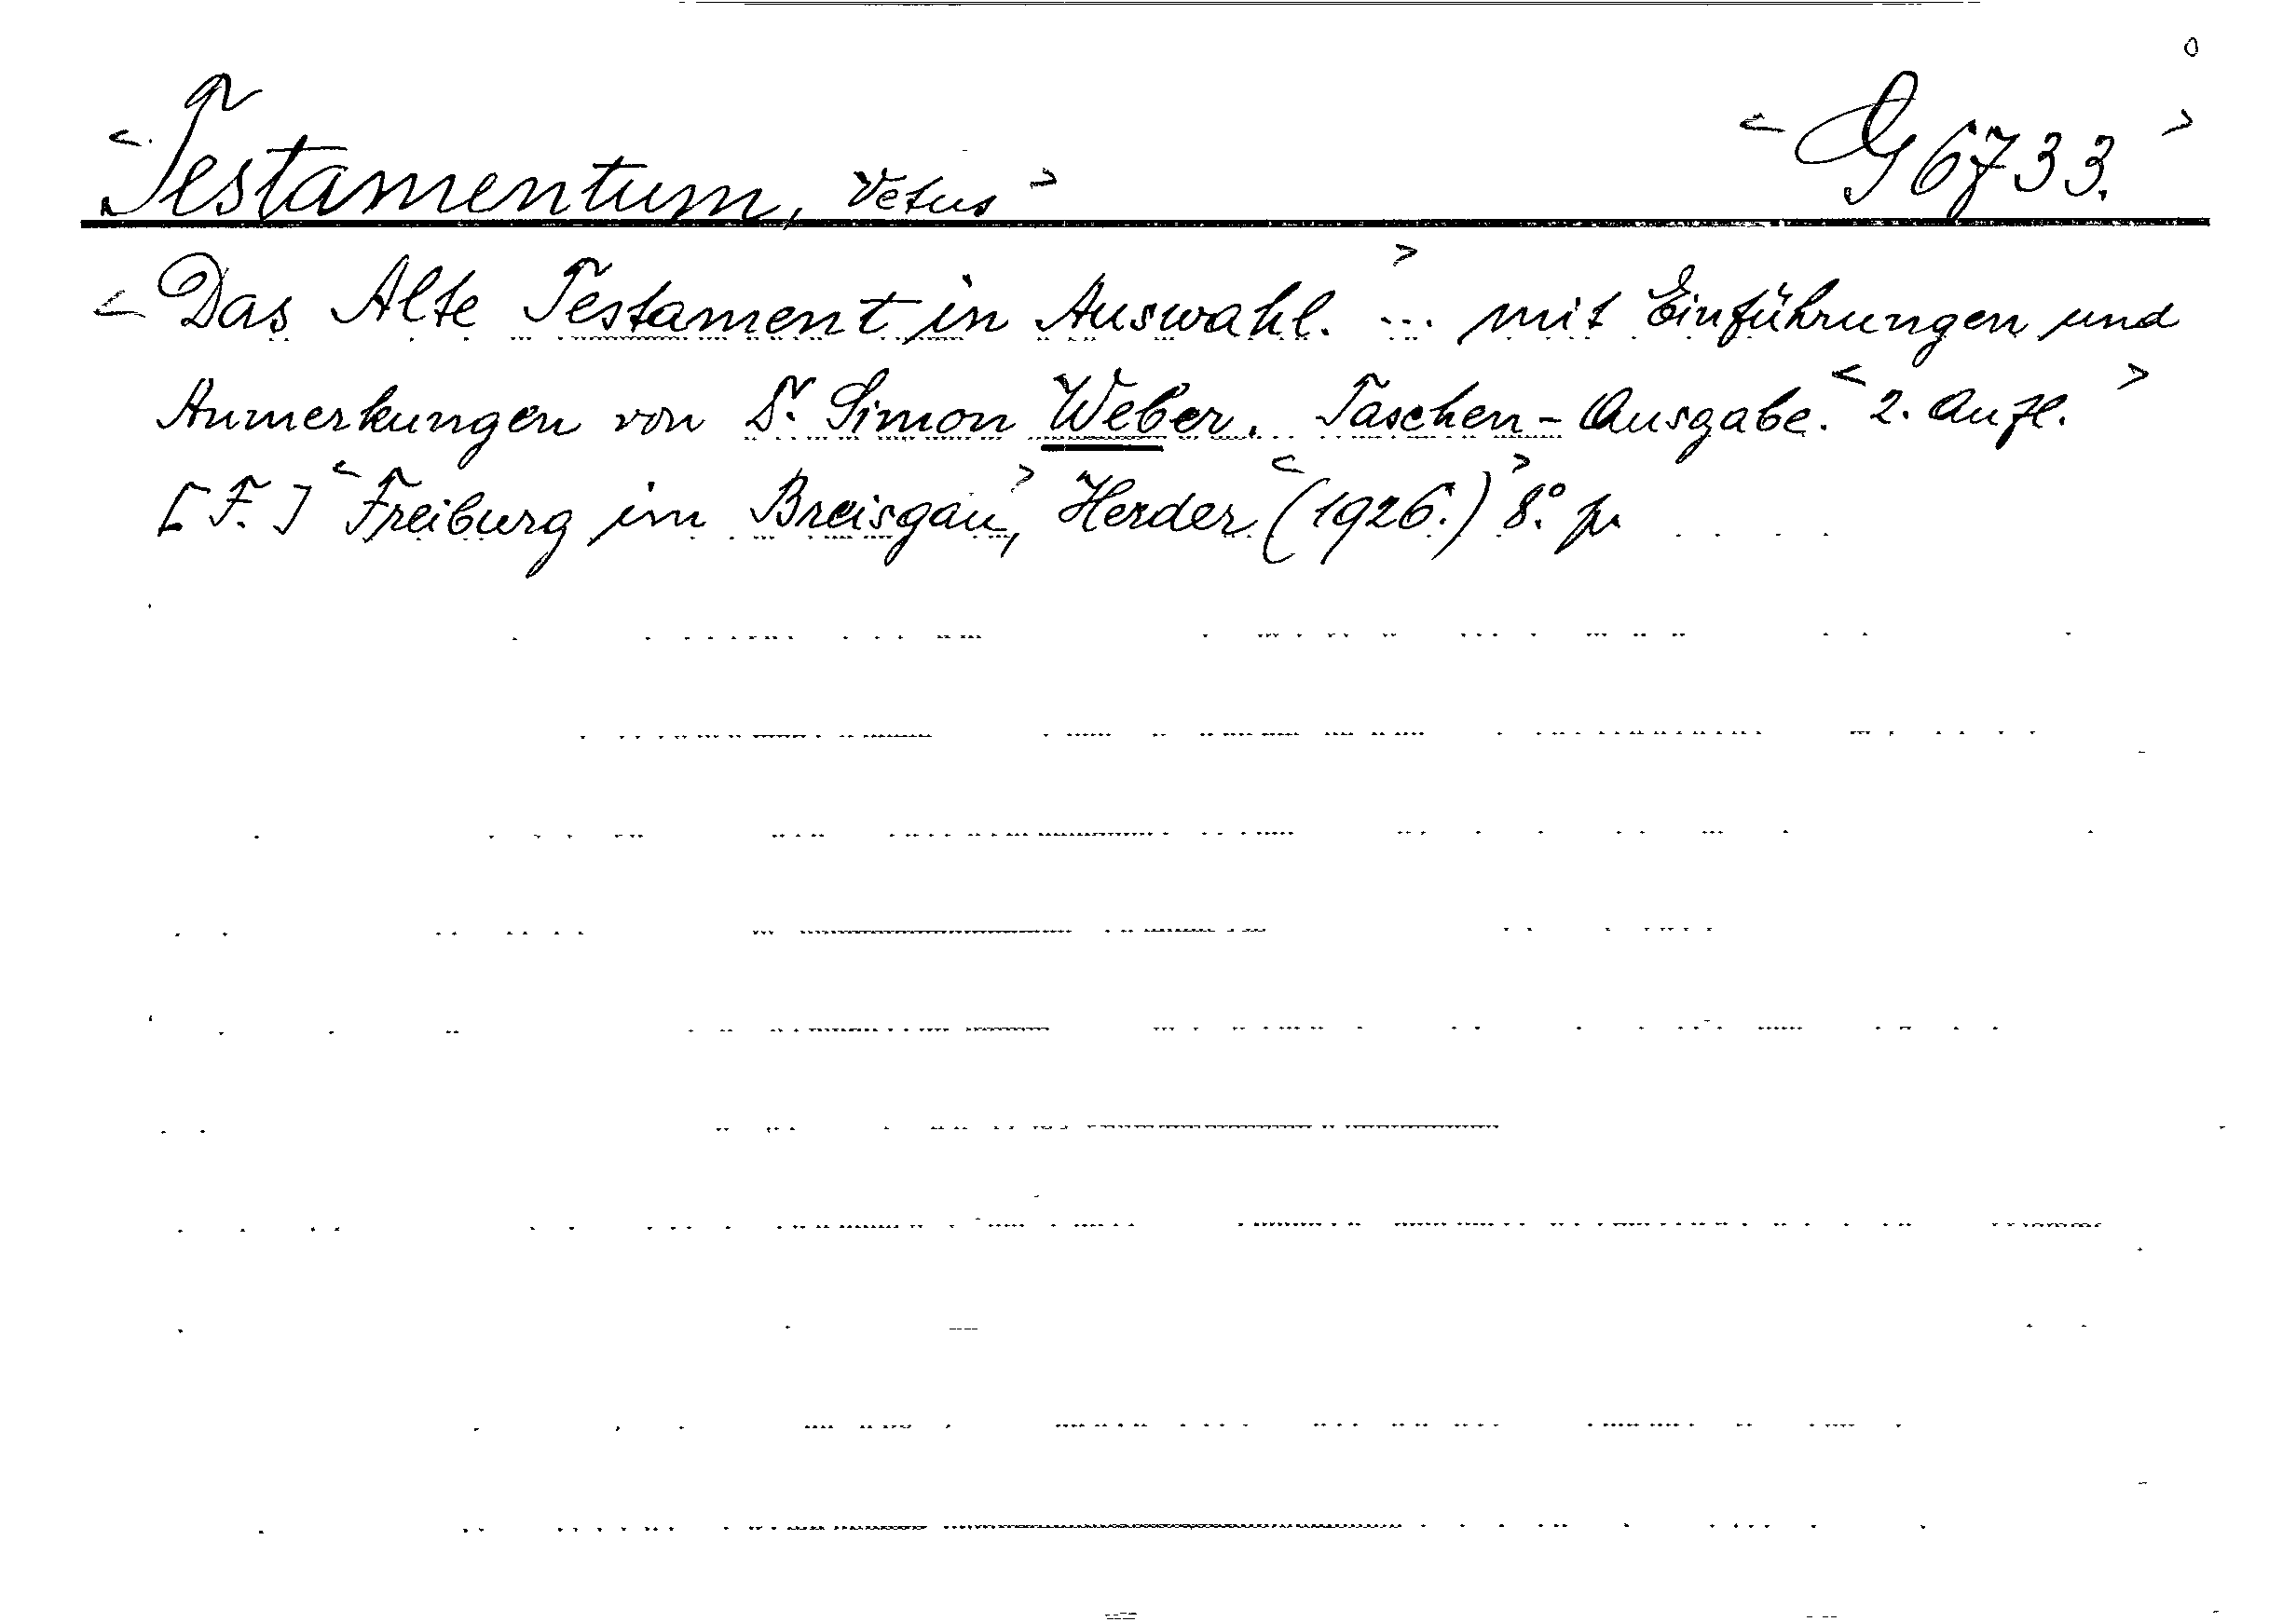 <Testamentum, Vetus> <G 6733.>
<Das Alte Testament in Auswahl.> ... mit Einführungen und
Anmerkungen von Dr. Simon Weber. Taschen-Ausgabe. <2. Aufl.>
[F.] <Freiburg im Breisgau>, Herder <(1926.)> 8.°